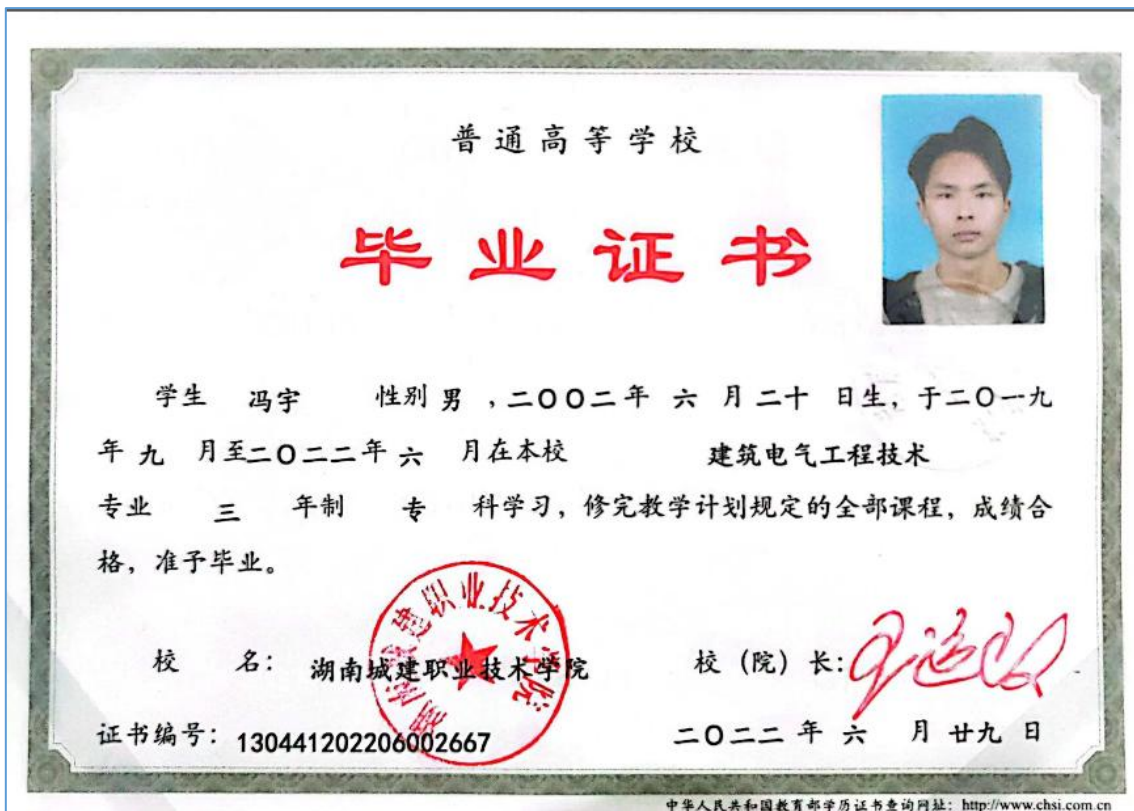 普通高等学校
毕业证书
学生 冯宇 性别 男 ，二〇〇二年 六 月 二十 日生，于二〇一九
年 九 月至二〇二二年 六 月在本校 建筑电气工程技术
专业 三 年制 专 科学习，修完教学计划规定的全部课程，成绩合
格，准予毕业。
校 名： 湖南城建职业技术学院 校（院）长：
湖南城建职业技术学院
证书编号：130441202206002667 二〇二二 年 六 月 廿九 日
中华人民共和国教育部学历证书查询网址：http://www.chsi.com.cn